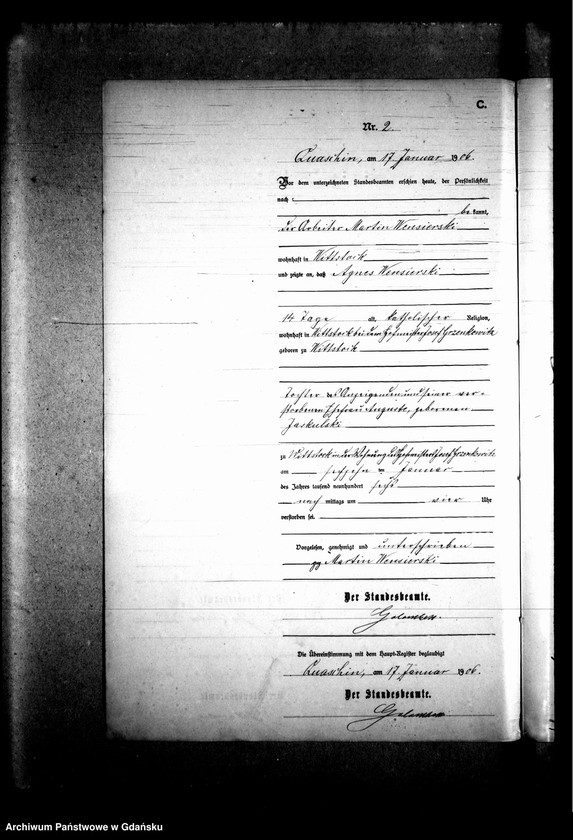 C.
Nr. 2.
Quaschin, am 17 Januar 1906.
Vor dem unterzeichneten Standesbeamten erschien heute, der Persönlichkeit
nach
be kannt,
der Arbeiter Martin Wensierski
wohnhaft in Wittstock
und zeigte an, daß Agnes Wensierski
14 Tage alt, katholischer Religion,
wohnhaft in Wittstock bei dem Hofmeister Josef Grzenkowitz
geboren zu Wittstock
Tochter des Anzeigenden und seiner ver-
storbenen Ehefrau Auguste, geborenen
Jaskulski
zu Wittstock in der Wohnung des Hofmeisters Josef Grzenkowitz
am sechzehn ten Januar
des Jahres tausend neunhundert sechs
nach mittags um vier Uhr
verstorben sei.
Vorgelesen, genehmigt und unterschrieben
gez Martin Wensierski
Der Standesbeamte.
Die Übereinstimmung mit dem Haupt-Register beglaubigt
Quaschin, am 17 Januar 1906.
Der Standesbeamte.
Archiwum Państwowe w Gdańsku